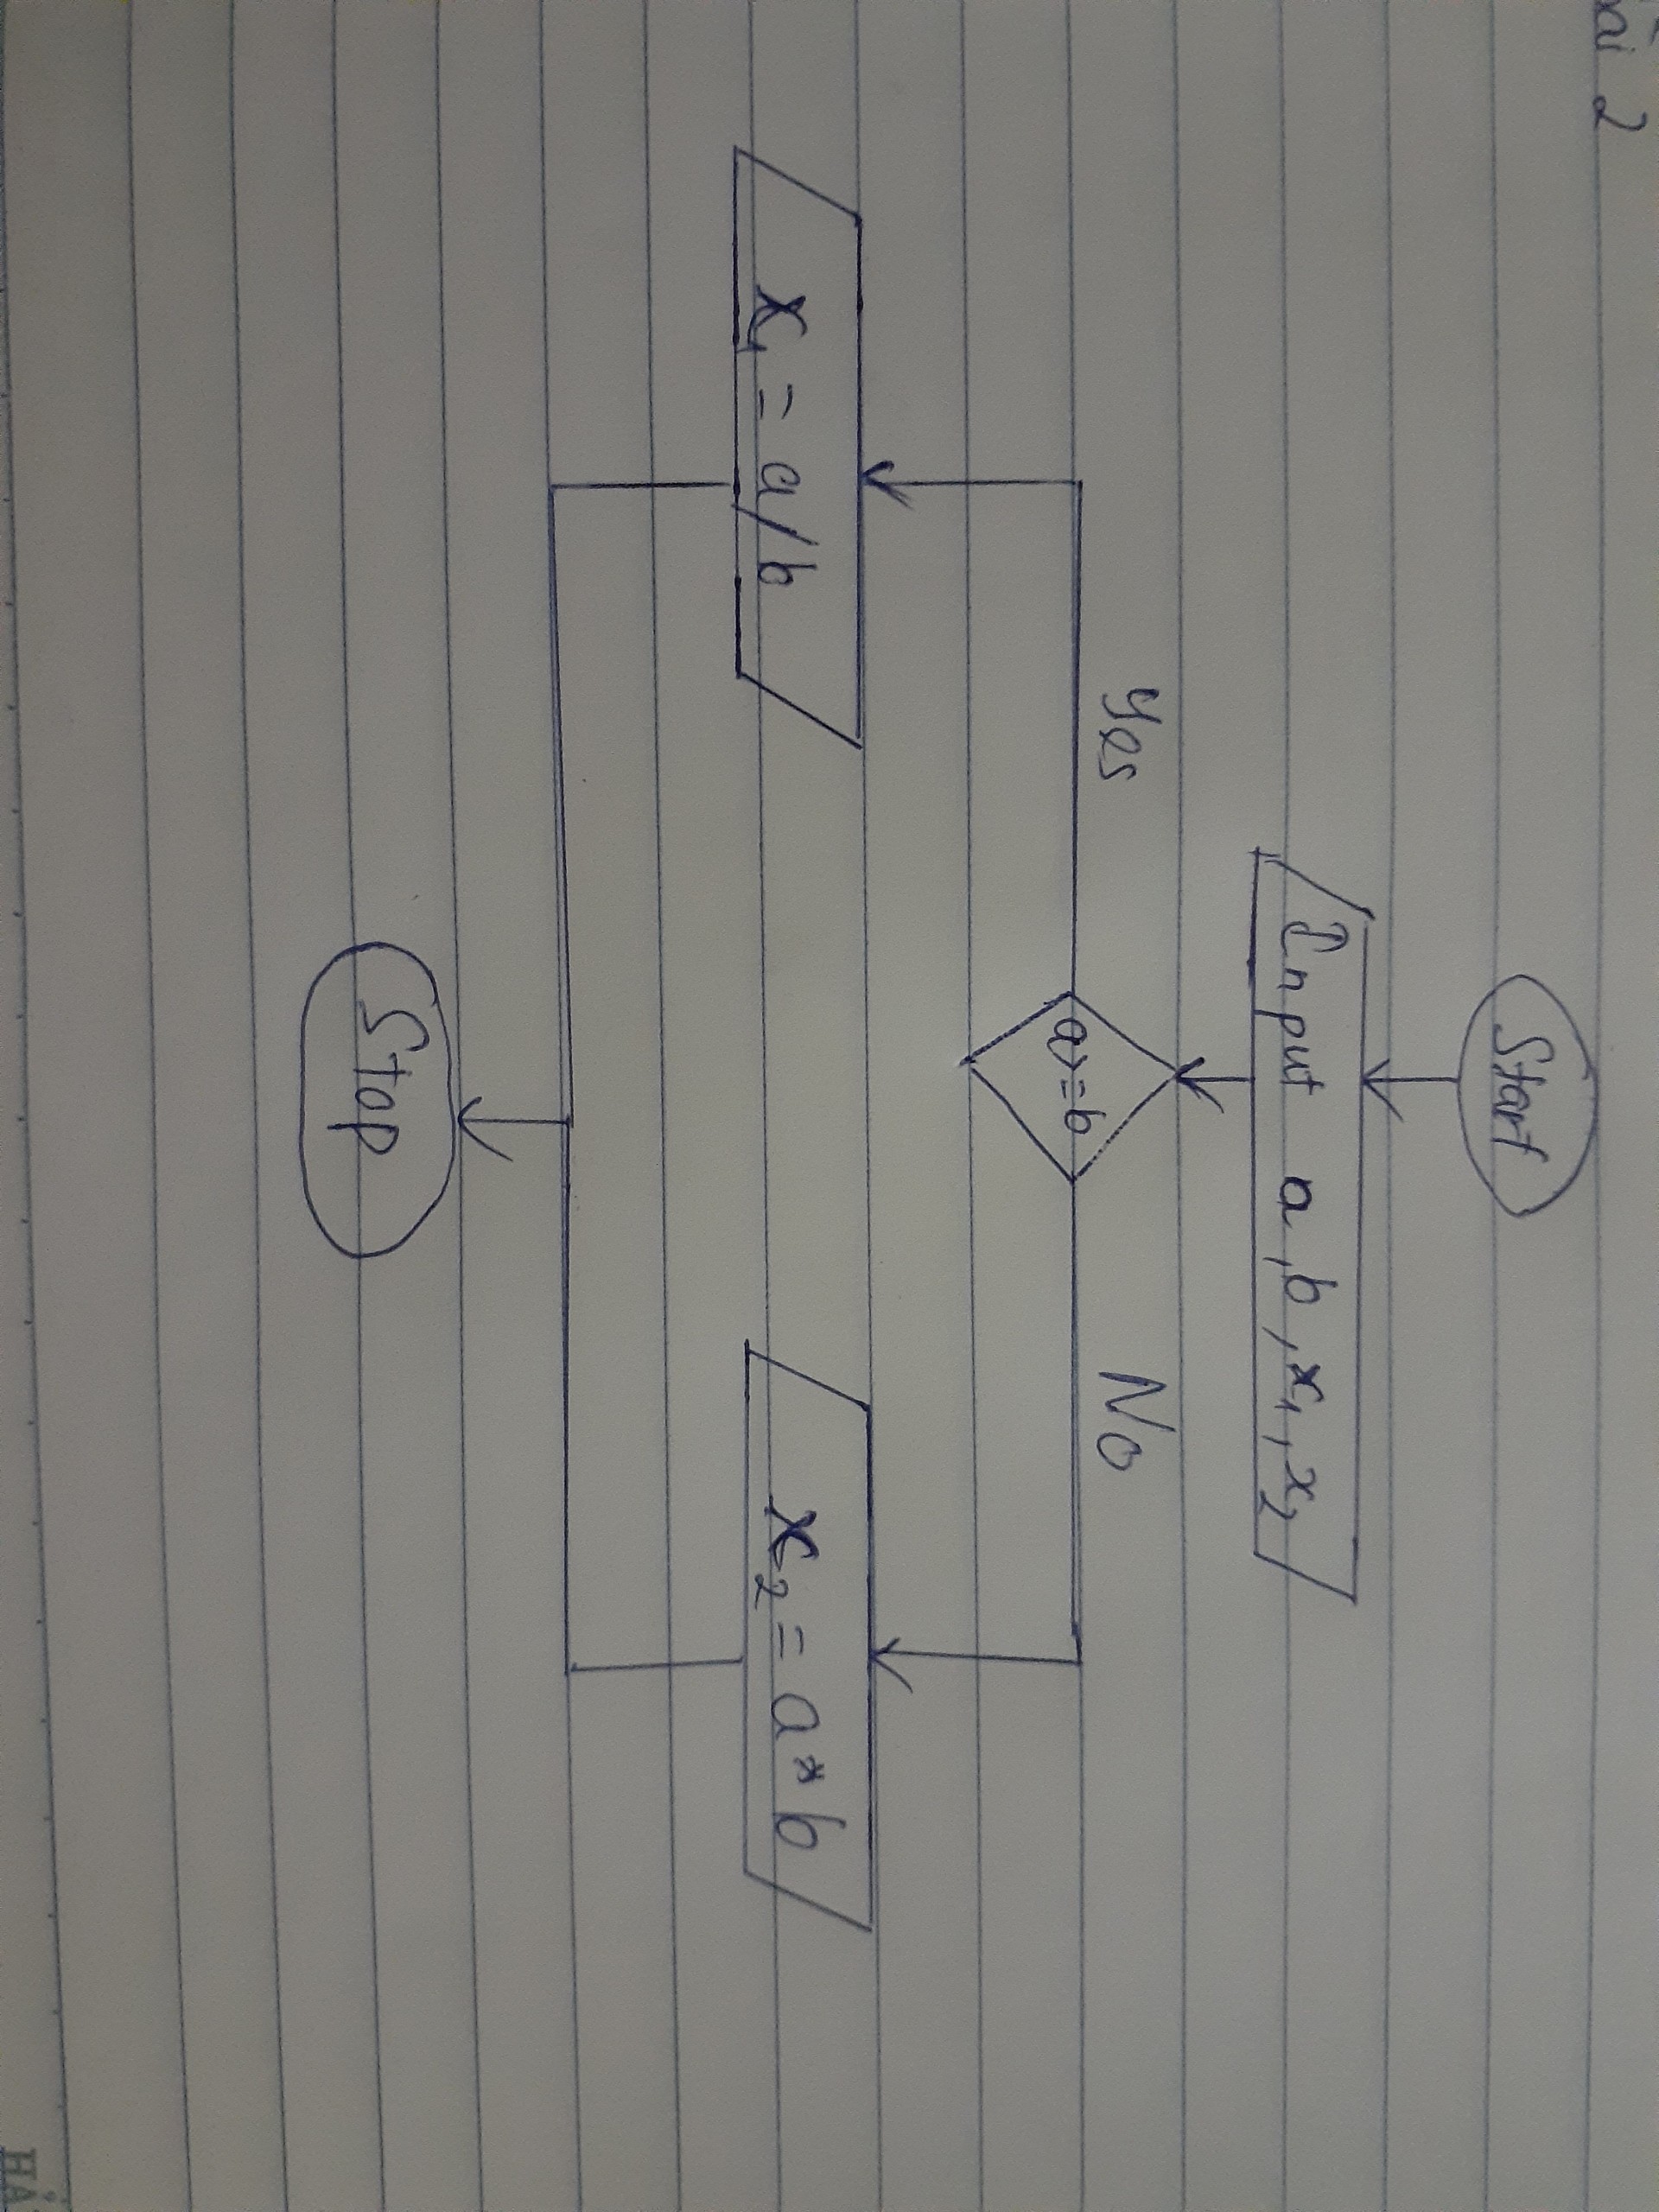 ài 2
Start
Input a, b, x1, x2
a>=b
Yes
No
x1 = a/b
x2 = a*b
Stop
HẢ